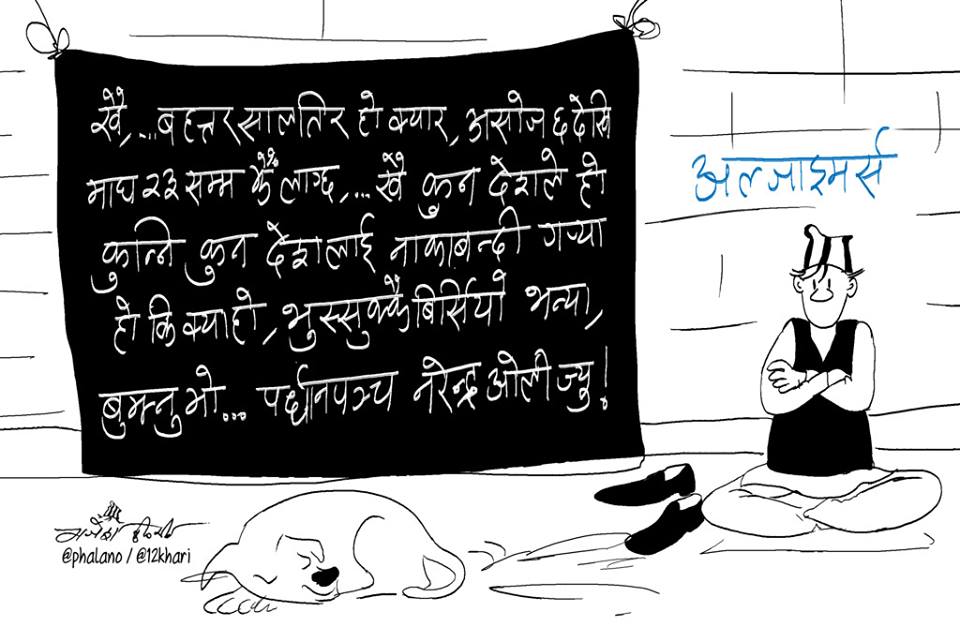 खै,...बहत्तर सालतिर हो क्यार, असोज ६ देखि
माघ २३ सम्म कै लाग्छ,... खै कुन देशले हो
कुन्नि कुन देशलाई नाकाबन्दी गर्‍या
हो कि क्या हो, भुस्सुक्कै बिर्सियो भन्या,
बुझ्नु भो... पर्धानपञ्च नरेन्द्र ओली ज्यु!
अल्जाइमर्स
@phalano / @12khari